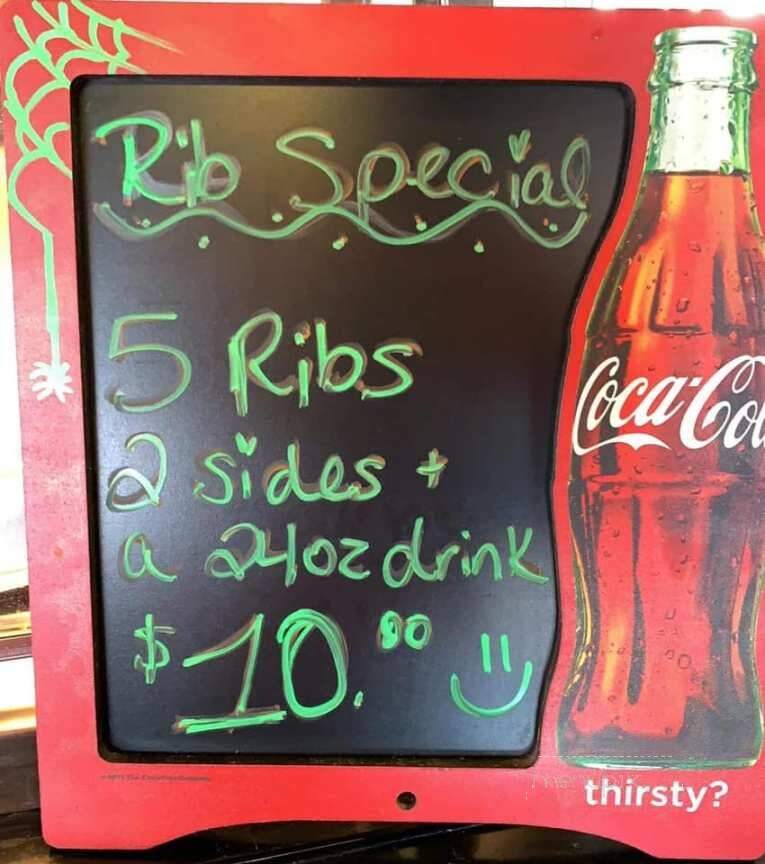 Rib Special
5 Ribs
2 sides +
a 24oz drink
$10.00
Coca-Col
thirsty?